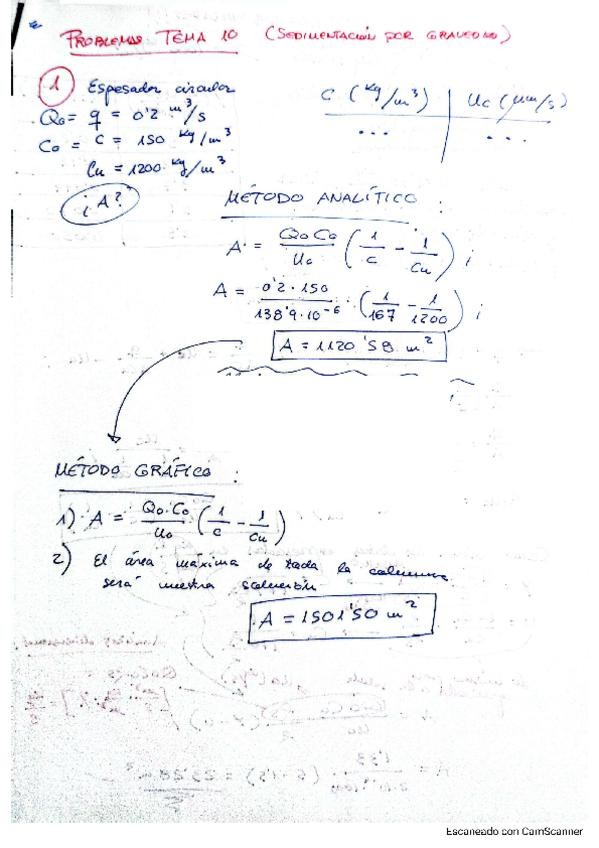 PROBLEMAS TEMA 10 (SEDIMENTACIÓN POR GRAVEDAD)
1 Espesador circular
Q₀ = q = 0'2 m³/s
C₀ = C = 150 kg/m³
Cu = 1200 kg/m³
¿A?
C (kg/m³) | Uc (μm/s)
... | ...
MÉTODO ANALÍTICO :
A = Q₀C₀/U₀ (1/C - 1/Cu) ;
A = 0'2 · 150 / 138'9·10⁻⁶ · (1/167 - 1/1200) ;
A = 1120'58 m²
MÉTODO GRÁFICO :
1) A = Q₀·C₀/U₀ (1/C - 1/Cu)
2) El área máxima de toda la columna
será nuestra solución
A = 1501'50 m²
Escaneado con CamScanner